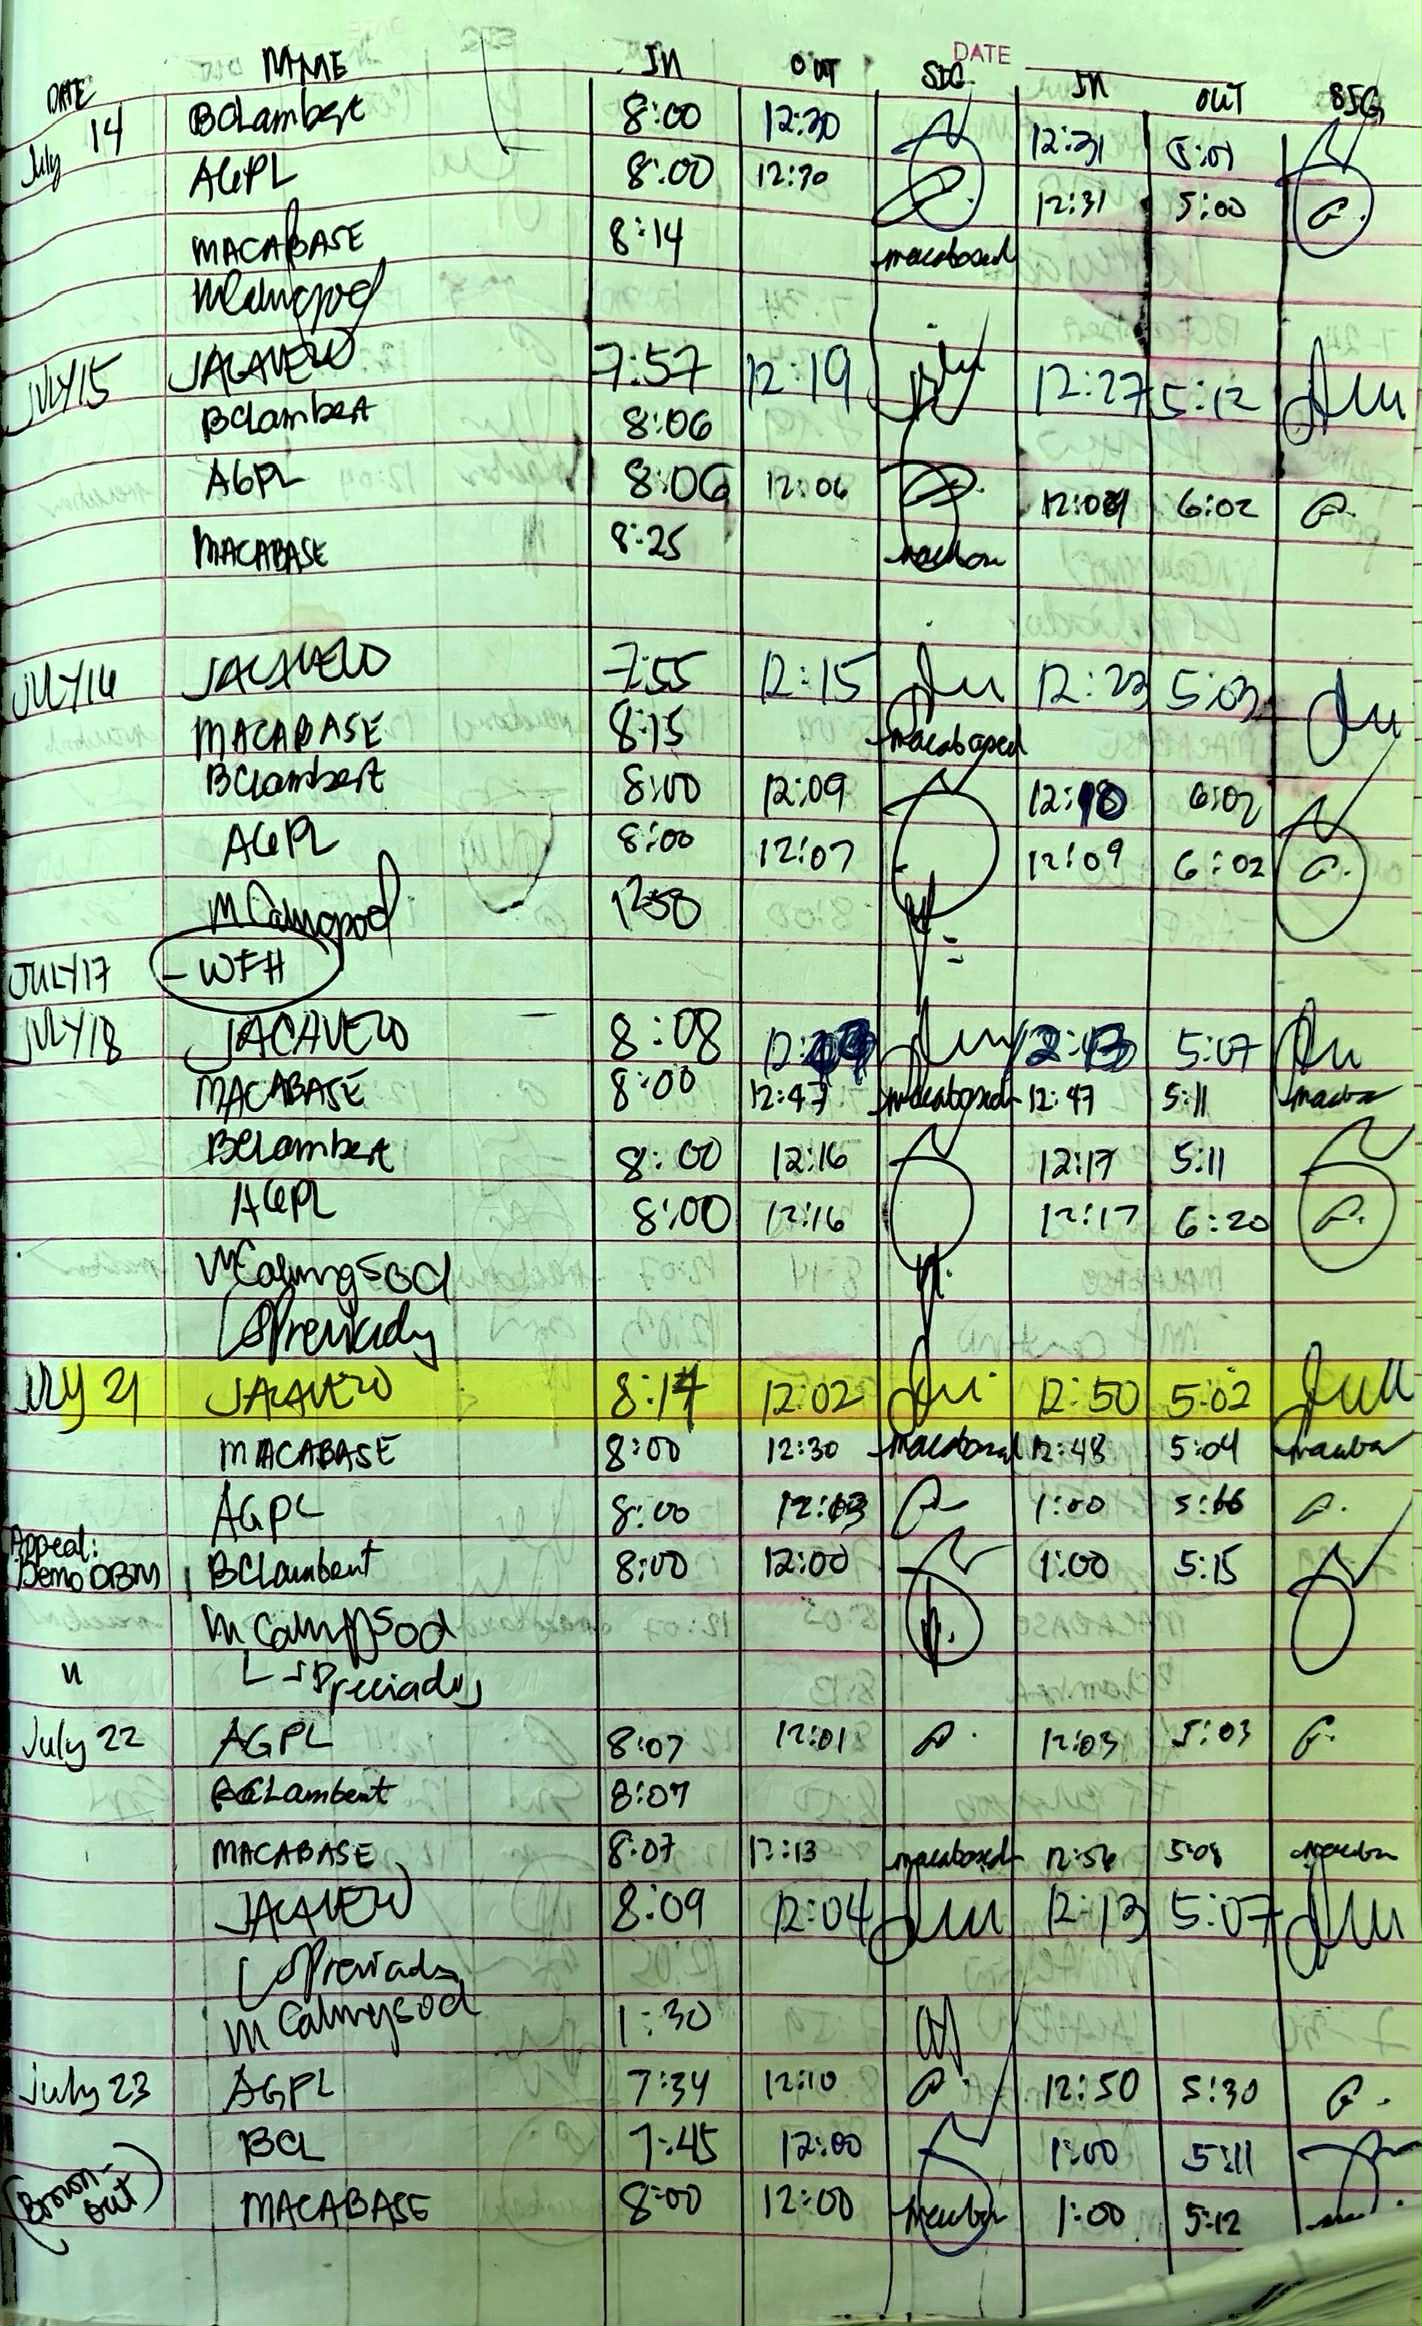 DATE
DATE NAME IN OUT SIG IN OUT SIG
July 14 BCLambert 8:00 12:30 12:31 5:01
AGPL 8:00 12:30 12:31 5:00
MACABASE 8:14 macabased
MCalingod
JULY 15 JACAVERO 7:57 12:19 12:27 5:12
BCLambert 8:06
AGPL 8:06 12:06 6:02
MACABASE 8:25
JULY 16 JACAVERO 7:55 12:15 12:23 5:03
MACABASE 8:15 macabased
BCLambert 8:00 12:09 6:02
AGPL 8:00 12:07 12:09 6:02
12:58
JULY 17 - WFH
JULY 18 JACAVERO 8:08 5:07
MACABASE 8:00 12:47 macabased 12:47 5:11
BCLambert 8:00 12:16 12:17 5:11
AGPL 8:00 12:16 12:17 6:20
MCalingsod
LSPreciados
JULY 21 JACAVERO 8:14 12:02 12:50 5:02
MACABASE 8:00 12:30 macabased 12:48 5:04
AGPL 8:00 12:03 1:00
Appeal:
Demo OBM BCLambert 8:00 12:00 1:00 5:15
MCalingsod
" LSPreciados
July 22 AGPL 8:07 12:01 12:03 5:03
BCLambert 8:07
MACABASE 8:07 12:13 macabased 12:56 5:08
JACAVERO 8:09 12:04 12:13 5:07
LSPreciados
MCalingsod 1:30
July 23 AGPL 7:34 12:10 12:50 5:30
BCL 7:45 12:00 1:00 5:11
(Brown-out) MACABASE 8:00 12:00 1:00 5:12